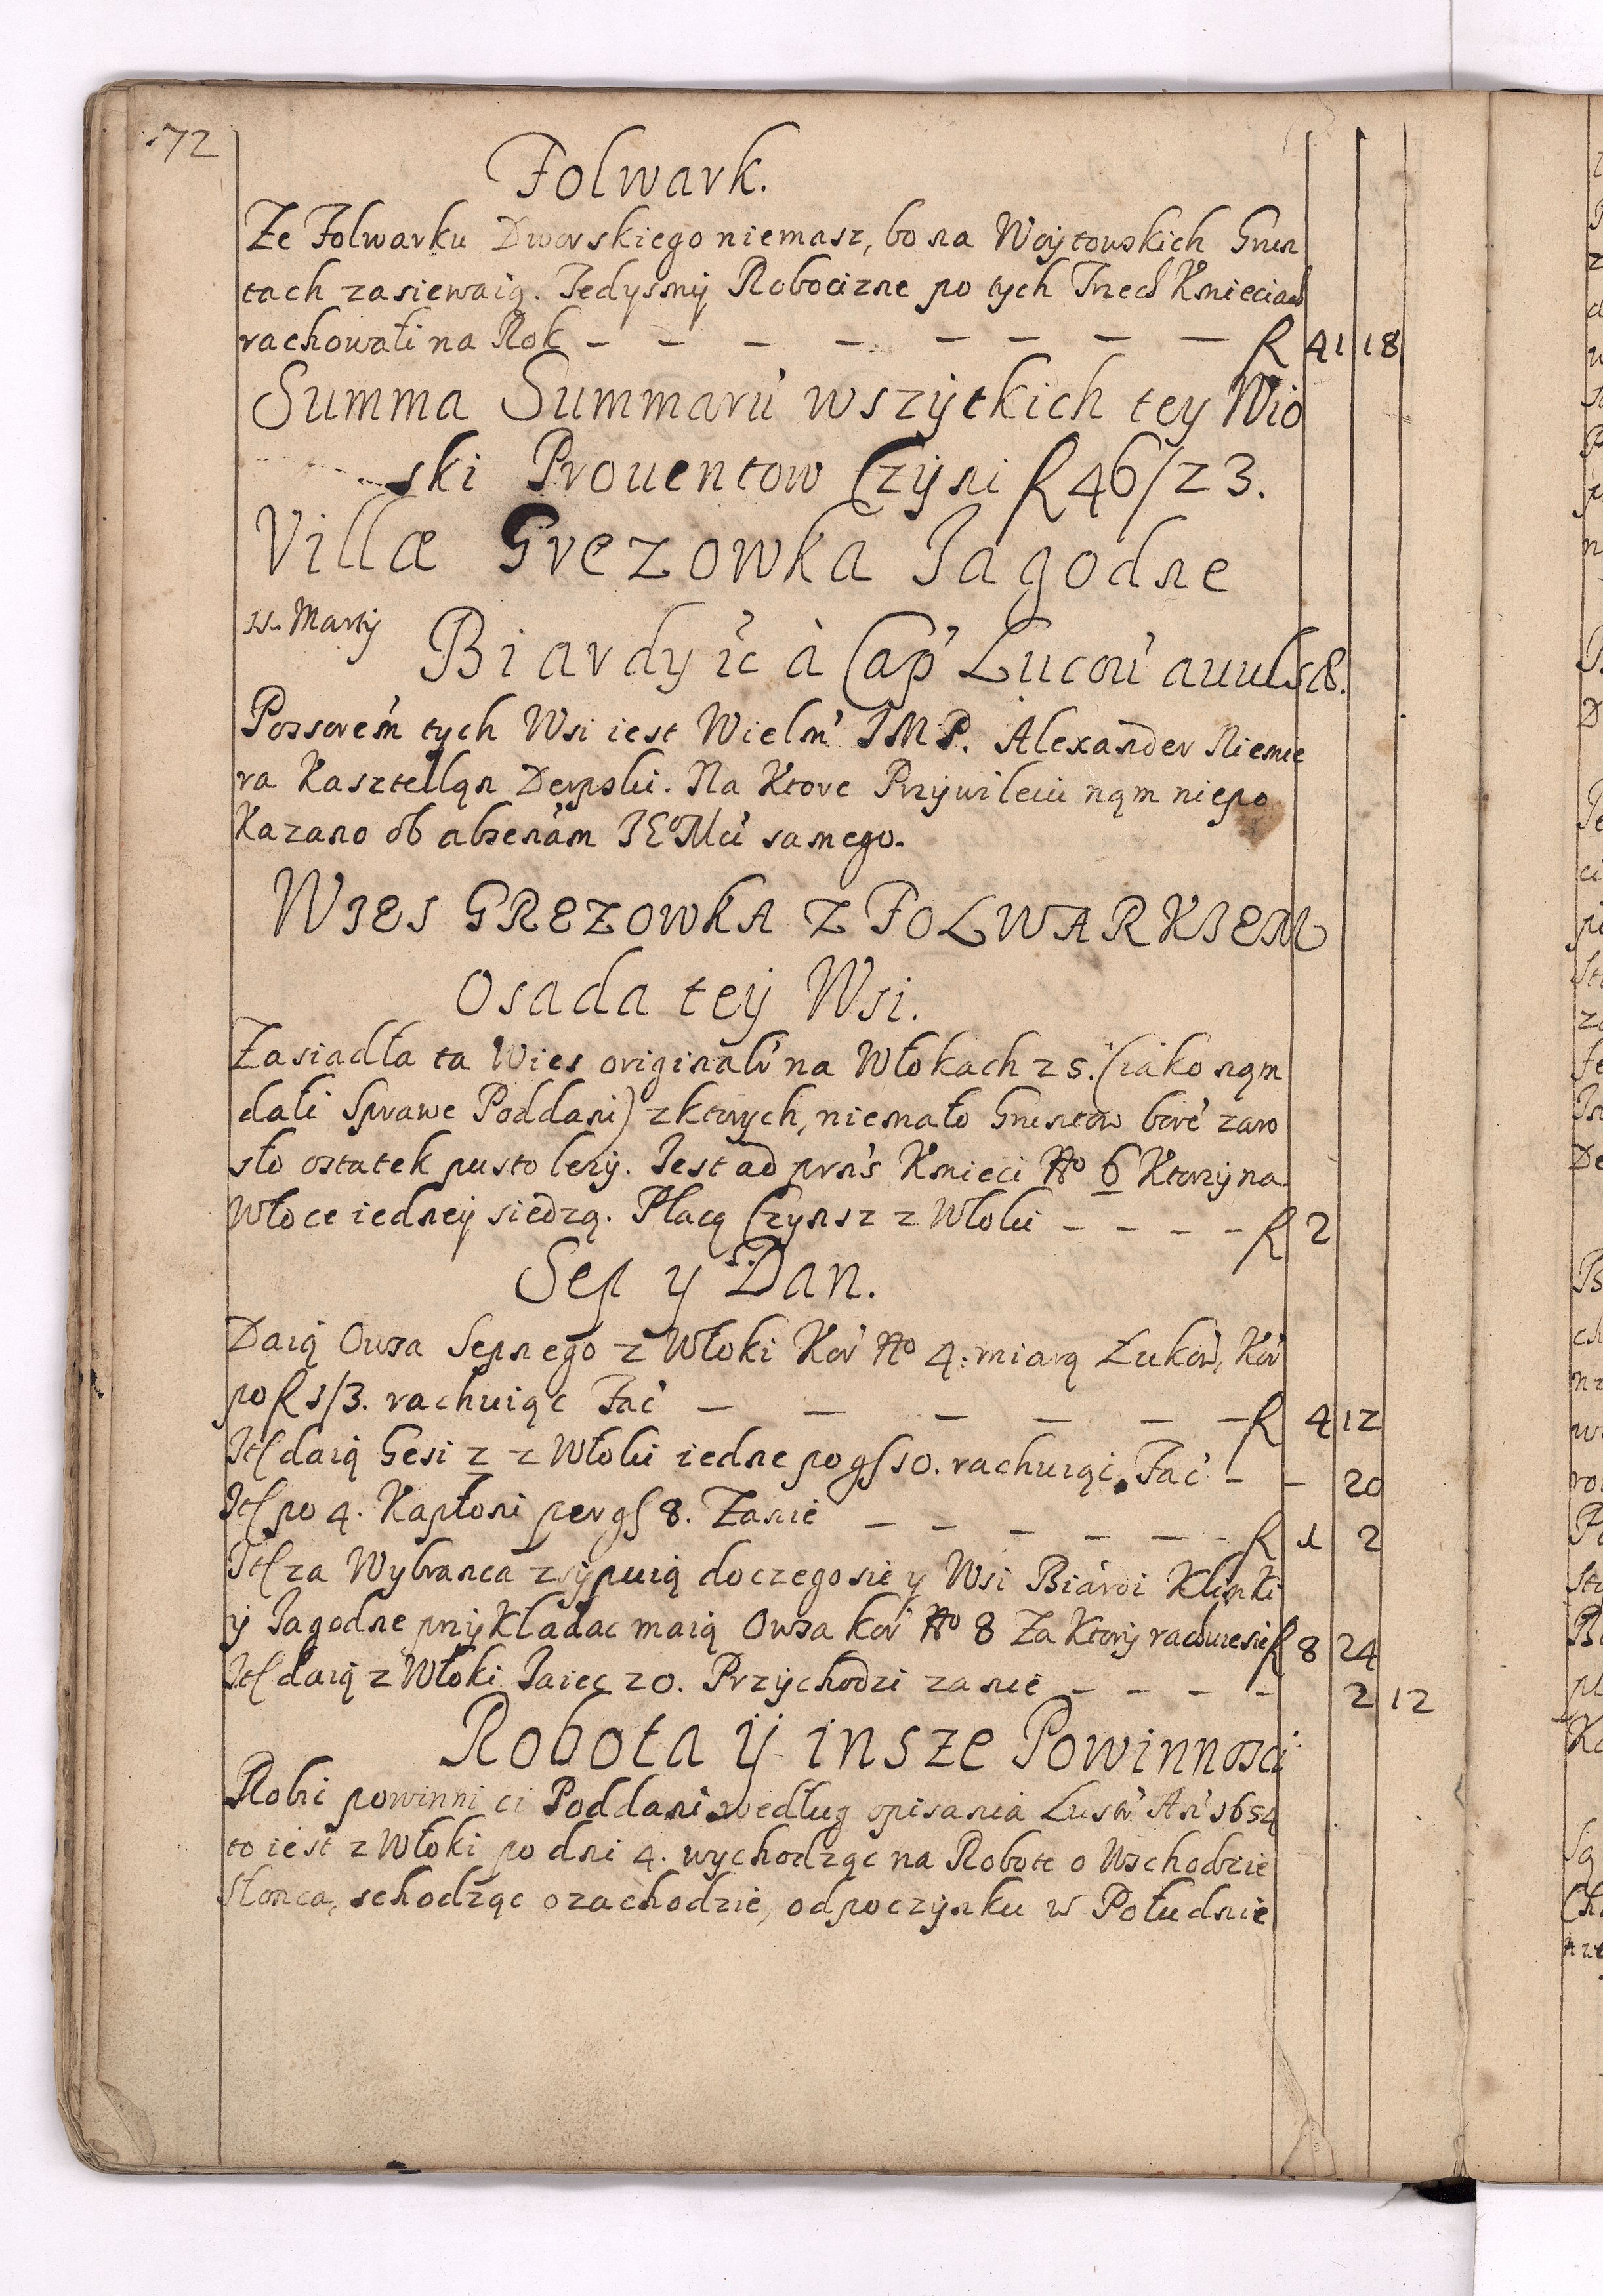 72
Folwark.
Że Folwarku Dworskiego niemasz, bo na Woytowskich Grun
tach zasiewaią. Jedyssmy Robocizne po tych Trzech Kmieciach
rachowali na Rok - - - - - - - - fl 41 18
Summa Summaru wszytkich tey Wio
ski Prouentow Czyni fl 46/23.
Villæ Grezowka Jagodne
11. Martij
Biardy ić à Cap' Lucou' auulsæ.
Possorem' tych Wsi iest Wielm' JMP. Alexander Niemie
ra Kasztellan Derpski. Na Ktore Przywileiu nąm niepo
kazano ob absentiam JEoMci samego.
WIES GREZOWKA Z FOLWARKIEM
Osada tey Wsi.
Zasiadła ta Wies originalr' na Włokach 25. (iako nąm
dali Sprawe Poddani) z ktorych, niemało Gruntow bore' zaro
sło ostatek pusto leży. Jest ad prns' Kmieci No 6 Ktorzy na
Włoce iedney siedzą. Płacą Czynsz z Włoki - - - - fl 2
Sep y Dan.
Daią Owsa Sepnego z Włoki Kor' No 4. miarą Łukow, Kor'
po fl 1/3. rachuiąc Fac' - - - - - - fl 4 12
It daią Gesi 2 z Włoki iedne po gs 10. rachuiąc. Fac' - - 20
It po 4. Kapłoni per gs 8. Zanie - - - - - - fl 1 2
It za Wybranca zsypuią do czego sie y Wsi Biardi Klimki
y Jagodne przykładac maią Owsa kor' No 8 Za Ktory rachuie sie fl 8 24
It daią z Włoki Jaiec 20. Przychodzi zanie - - - - 2 12
Robota y insze Powinnosci
Robic powinni ci Poddani według opisania Lustr' An' 1654
to iest z Włoki po dni 4. wychodząc na Robote o Wschodzie
Słonca, schodząc o zachodzie, odpoczynku w Południe